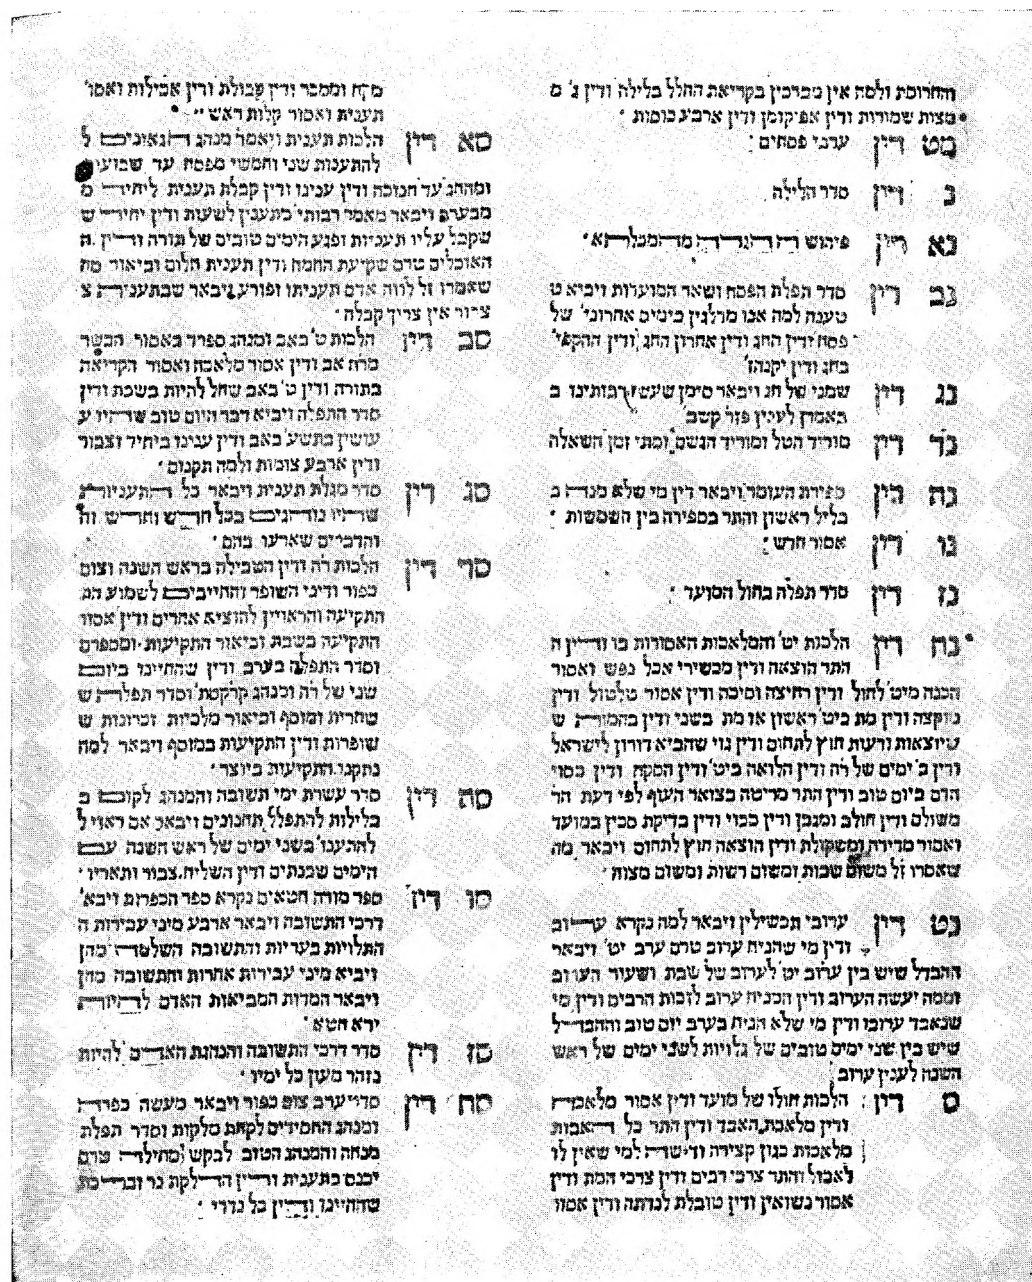 והחרוסת ולמה אין מברכין בקריאת ההלל בלילה ודין ג' מ
מצות שמורות ודין אפיקומן ודין ארבע כוסות
מט דין ערבי פסחים
נ דין סדר הלילה
נא דין פירוש ההגדה
נב דין סדר תפלת הפסח ושאר המועדות ויביא ט
טענה למה אנו מדלגין בימים אחרוני' של
פסח ודין החג ודין אחרון החג ודין ההקפי'
בחג ודין יקנהז'
נג דין שמני של חג ויבאר סימן שעשו רבותינו ב
באמרן לענין פזר קשב
נד דין מוריד הטל ומוריד הגשם ומתי זמן השאלה
נה דין ספירת העומר ויבאר דין מי שלא מנה ב
בליל ראשון והתר בספירה בין השמשות
נו דין אסור חדש
נז דין סדר תפלה בחול המועד
נח דין הלכות יט' והמלאכות האסורות בו ודין ה
התר הוצאה ודין מכשירי אכל נפש ואסור
הכנה מיט' לחול ודין רחיצה וסיכה ודין אסור טלטול ודין
מוקצה ודין מת ביט' ראשון או מת בשני ודין בהמות ש
שיוצאות ורעות חוץ לתחום ודין גוי שהביא דורון לישראל
ודין ב' ימים של רה ודין הלואה ביט' ודין הסקה ודין כסוי
הדם ביום טוב ודין התר מריטה בצואר העוף לפי דעת הר
משולם ודין חולב ומגבן ודין כבוי ודין בדיקת סכין במועד
ואסור מדידה ומשקולת ודין הוצאה חוץ לתחום ויבאר מה
שאמרו זל משום שבות ומשום רשות ומשום מצוה
נט דין ערובי תבשילין ויבאר למה נקרא ערוב
ודין מי שהניח ערוב טרם ערב יט' ויבאר
ההבדל שיש בין ערוב יט' לערוב של שבת ושעור הערוב
וממה יעשה הערוב ודין המניח ערוב לזכות הרבים ודין מי
שנאבד ערובו ודין מי שלא הניח בערב יום טוב וההבדל
שיש בין שני ימים טובים של גלויות לשני ימים של ראש
השנה לענין ערוב
ס דין הלכות חולו של מועד ודין אסור מלאכה
ודין מלאכת האבד ודין התר כל האבות
מלאכות כגון קצירה ודישה למי שאין לו
לאכול והתר צרכי רבים ודין צרכי המת ודין
אסור נשואין ודין טובלת לנדתה ודין אסור
מקח וממכר ודין קבולת ודין אבילות ואסו'
תענית ואסור קלות ראש
סא דין הלכות תענית ויאמר מנהג הגאונים ל
להתענות שני וחמשי מפסח עד שבועות
ומהחג עד חנוכה ודין ענינו ודין קבלת תענית ליחיד מ
מבערב ויבאר מאמר רבותי' מתענין לשעות ודין יחיד ש
שקבל עליו תעניות ופגע הימים טובים של תורה ודין ה
האוכלים טרם שקיעת החמה ודין תענית חלום וביאור מה
שאמרו זל לווה אדם תעניתו ופורע ויבאר שבתענית צ
צבור אין צריך קבלה
סב דין הלכות ט' באב ומנהג ספרד באסור הבשר
מרח אב ודין אסור מלאכה ואסור הקריאה
בתורה ודין ט' באב שחל להיות בשבת ודין
סדר התפלה ויביא דבר היום טוב שהיו ע
עושין בתשע' באב ודין ענינו ביחיד וצבור
ודין ארבע צומות ולמה תקנום
סג דין סדר מגלת תענית ויבאר כל התעניות
שהיו נוהגים בכל חדש וחדש וה
והדברים שארעו בהם
סד דין הלכות רה ודין הטבילה בראש השנה וצום
כפור ודיני השופר והחייבים לשמוע הת
התקיעה והראויין להוציא אחרים ודין אסור
התקיעה בשבת וביאור התקיעות ומספרם
וסדר התפלה בערב ודין שהחיינו ביום
שני של רה ומנהג קרקטת' וסדר תפלת ש
שחרית ומוסף וביאור מלכיות זכרונות ש
שופרות ודין התקיעות במוסף ויבאר למה
נתקנו התקיעות ביוצר
סה דין סדר עשרת ימי תשובה והמנהג לקום ב
בלילות להתפלל תחנונים ויבאר אם ראוי ל
להתענו' בשני ימים של ראש השנה עם
הימים שבנתים ודין השליח צבור ותאריו
סו דין ספר מורה חטאים נקרא ספר הכפרות ויבא'
דרכי התשובה ויבאר ארבע מיני עבירות ה
התלויות בעריות והתשובה השלמה מהן
ויביא מיני עבירות אחרות והתשובה מהן
ויבאר המדות המביאות האדם להיות
ירא חטא
סז דין סדר דרכי התשובה והנהגת האדם להיות
נזהר מעון כל ימיו
סח דין סדר ערב צום כפור ויבאר מעשה כפרה
ומנהג החסידים לקחת מלקות וסדר תפלת
מנחה והמנהג הטוב לבקש מחילה טרם
יכנס בתענית ודין הדלקת נר וברכת
שהחיינו ודין כל נדרי